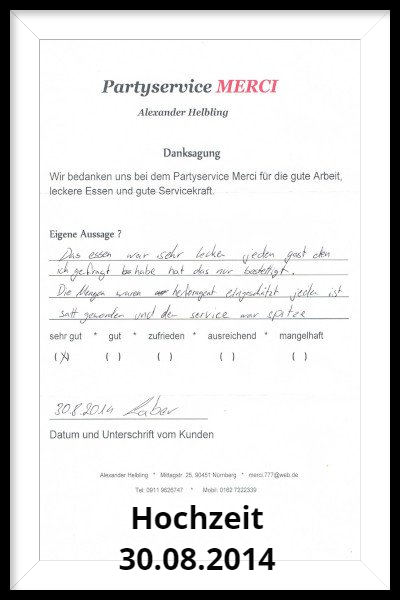 Partyservice MERCI
Alexander Helbling
Danksagung
Wir bedanken uns bei dem Partyservice Merci für die gute Arbeit,
leckere Essen und gute Servicekraft.
Eigene Aussage ?
Das essen war sehr lecker jeden gast den
ich gefragt habe hat das nur bestätigt.
Die Mengen waren hervoragent eingeschätzt jeder ist
satt geworden und der service war spitze
sehr gut * gut * zufrieden * ausreichend * mangelhaft
(X) ( ) ( ) ( ) ( )
30.8.2014
Datum und Unterschrift vom Kunden
Alexander Helbling * Mittagstr. 25, 90451 Nürnberg * merci.777@web.de
Tel: 0911 9626747 * Mobil: 0162 7222339
Hochzeit
30.08.2014